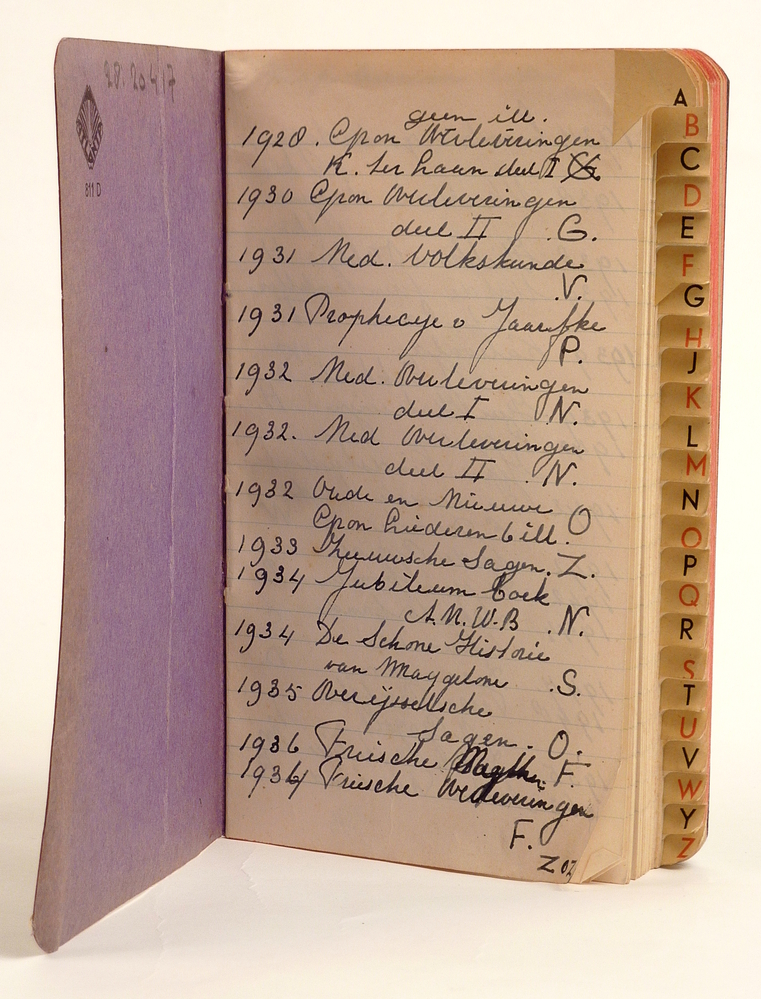 28.20417
811 D
geen ill.
1928. Gron Overleveringen
K. ter Laan deel I G
1930 Gron Overleveringen
deel II .G.
1931 Ned. Volkskunde
.V.
1931 Prophecye v Jaarfke
P.
1932 Ned. Overleveringen
deel I N.
1932. Ned Overleveringen
deel II .N.
1932 Oude en Nieuwe O
Gron Liederen 6 ill.
1933 Zeeuwsche Sagen. Z.
1934 Jubileum boek
A.N.W.B .N.
1934 De Schone Historie
van Maygelone .S.
1935 Overijsselsche
Sagen. O.
1936 Friesche F.
1936 Friesche Overleveringen
F.
ZOZ
A
B
C
D
E
F
G
H
J
K
L
M
N
O
P
Q
R
S
T
U
V
W
Y
Z